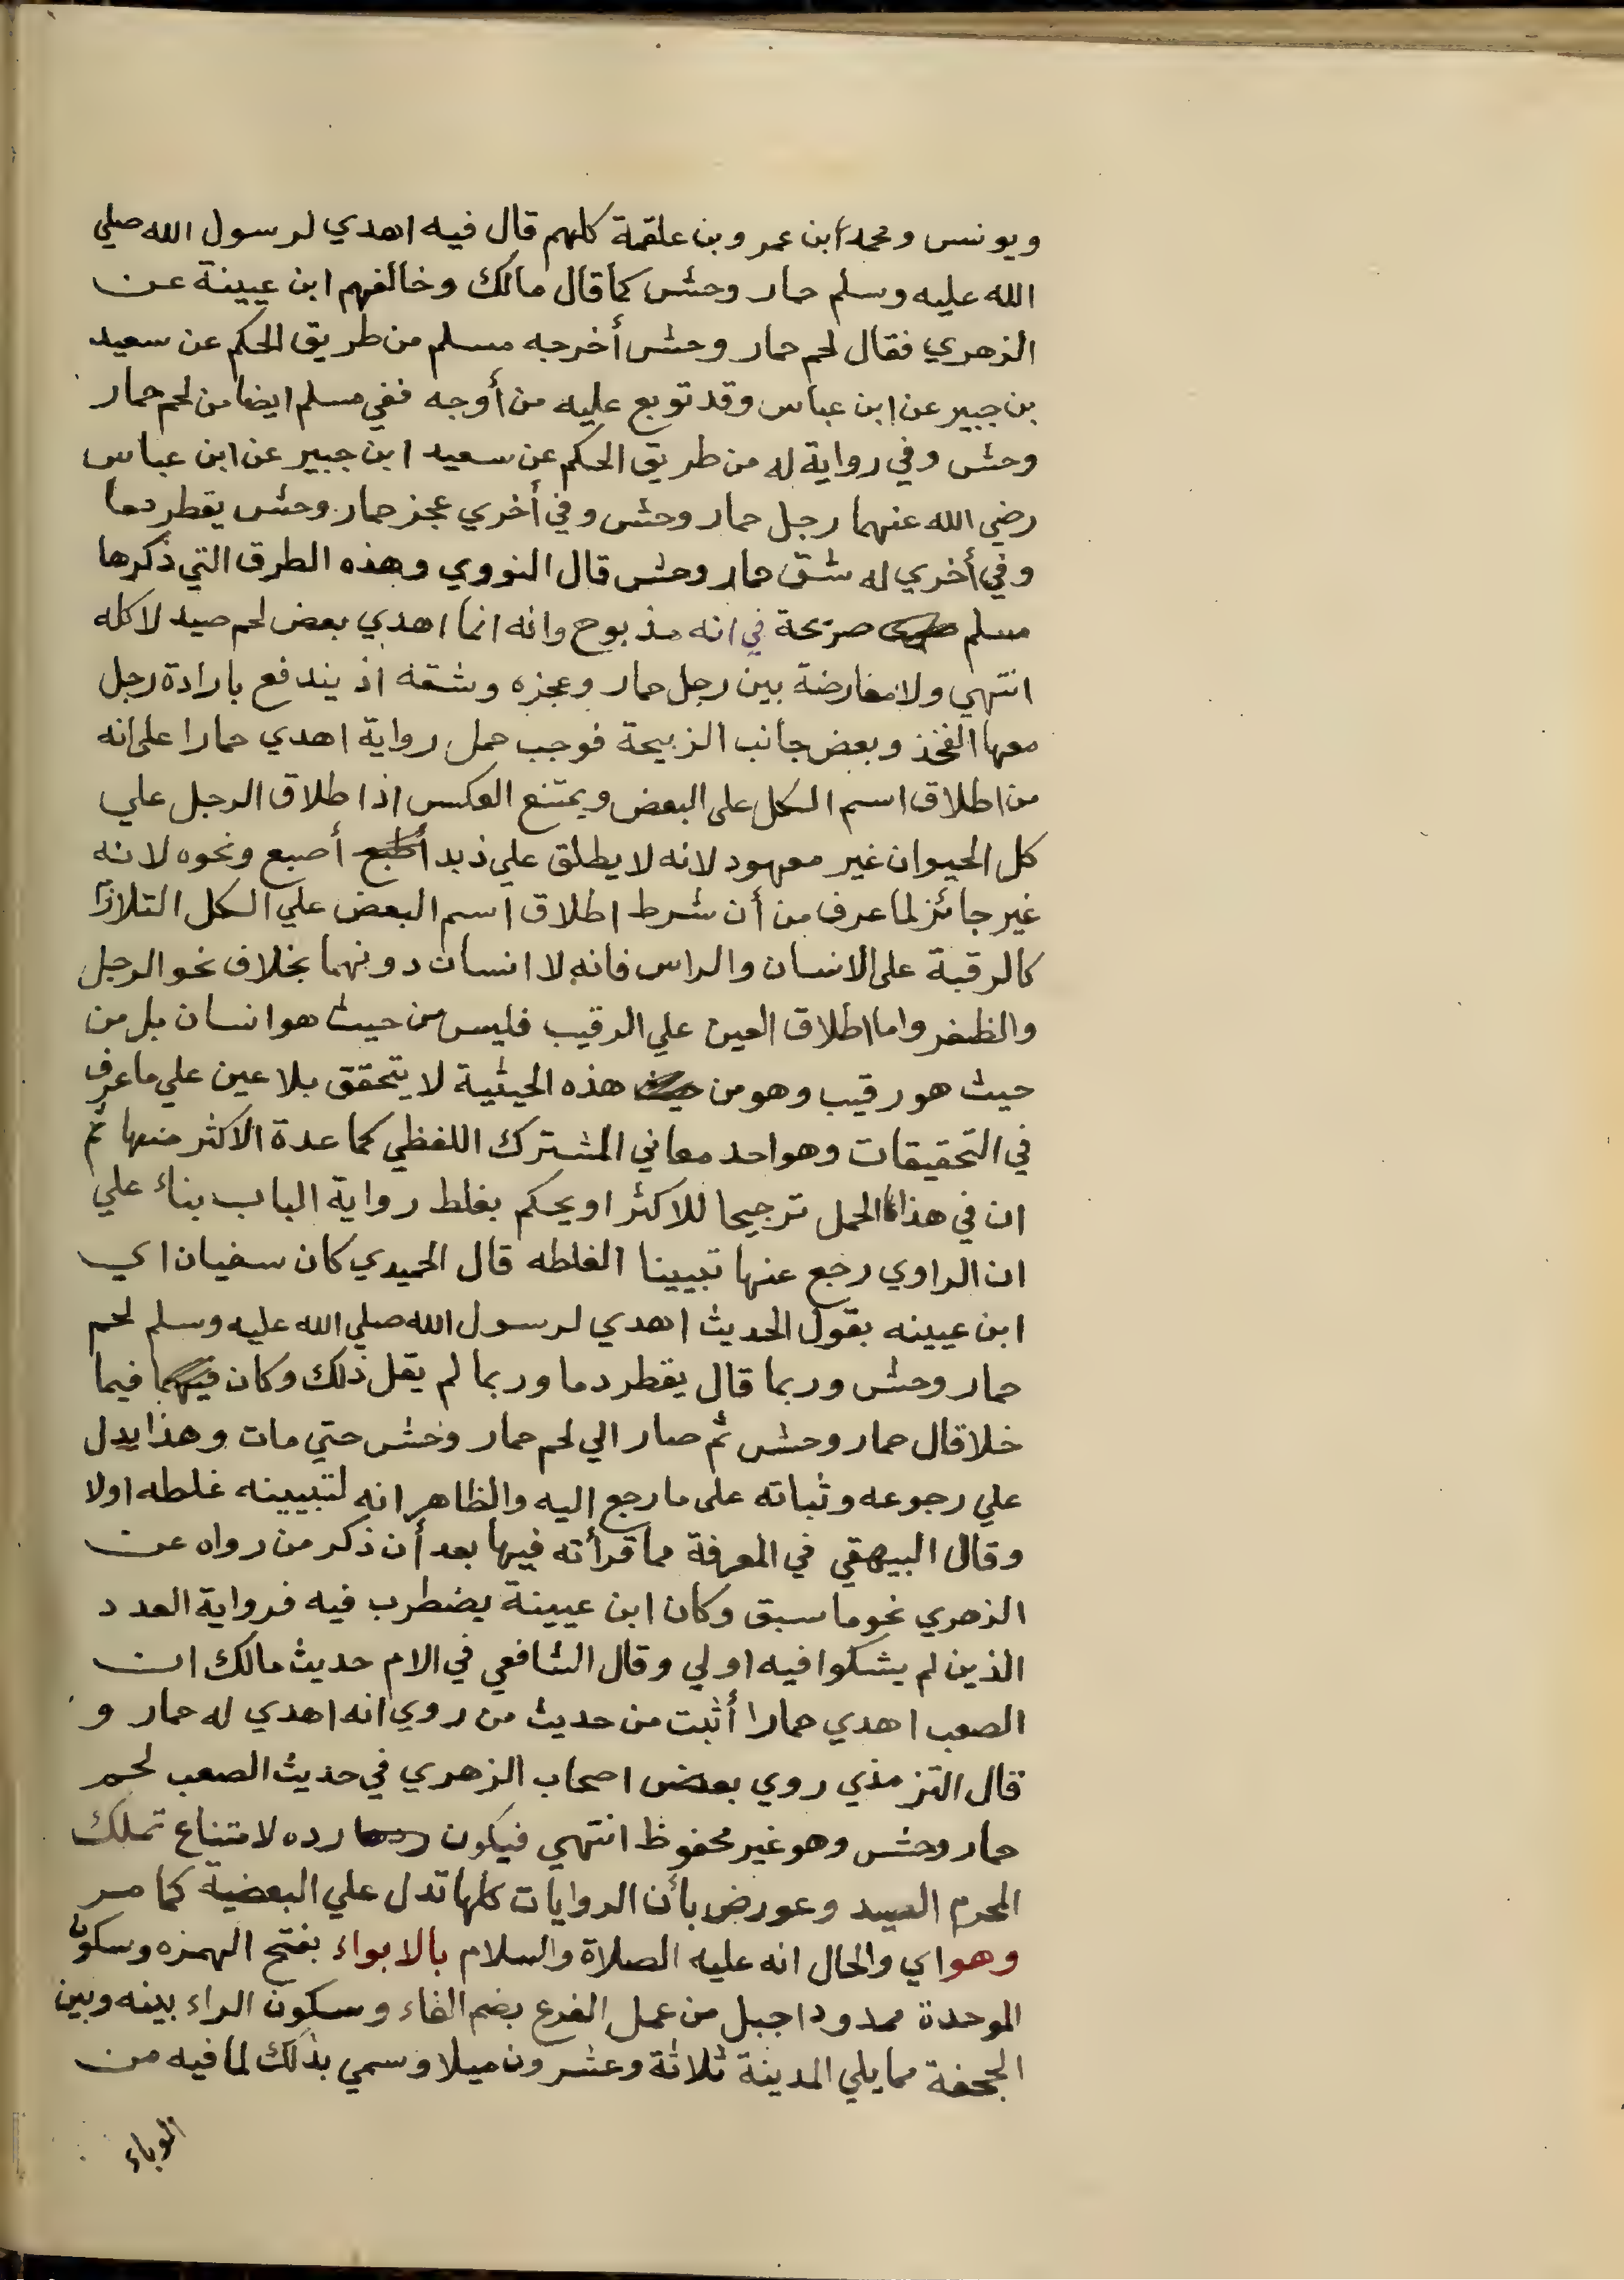 ويونس ومحمد ابن عمر وبن علقمة كلهم قال فيه اهدي لرسول الله صلي
الله عليه وسلم حمار وحش كما قال مالك وخالفهم ابن عيينة عن
الزهري فقال لحم حمار وحش أخرجه مسلم من طريق الحكم عن سعيد
بن جبير عن ابن عباس وقد توبع عليه من أوجه ففي مسلم ايضا من لحم حمار
وحش وفي رواية له من طريق الحكم عن سعيد ابن جبير عن ابن عباس
رضي الله عنهما رجل حمار وحش وفي أخري عجز حمار وحش يقطر دما
وفي أخري له شق حمار وحش قال النووي وهذه الطرق التي ذكرها
مسلم صريحة في انه مذبوح وانه انما اهدي بعض لحم صيد لا كله
انتهي ولا معارضة بين رجل حمار وعجزه وشقه اذ يندفع بارادة رجل
معها الفخذ وبعض جانب الزبيحة فوجب حمل رواية اهدي حمارا علي انه
من اطلاق اسم الكل علي البعض ويمتنع العكس اذ اطلاق الرجل علي
كل الحيوان غير معهود لانه لا يطلق علي ذيد أصبع ونحوه لانه
غير جائز لما عرف من أن شرط اطلاق اسم البعض علي الكل التلازم
كالرقبة علي الانسان والراس فانه لا انسان دونهما بخلاف نحو الرجل
والظفر واما اطلاق العين علي الرقيب فليس من حيث هو انسان بل من
حيث هو رقيب وهو من هذه الحيثية لا يتحقق بلا عين علي ما عرف
في التحقيقات وهو احد معاني المشترك اللفظي كما عدة الاكثر منها ثم
ان في هذا الحمل ترجيحا للاكثر او يحكم بغلط رواية الباب بناء علي
ان الراوي رجع عنها تبيينا الغلطه قال الحميدي كان سفيان اي
ابن عيينه يقول الحديث اهدي لرسول الله صلي الله عليه وسلم لحم
حمار وحش وربما قال يقطر دما وربما لم يقل ذلك وكان فيما
خلا قال حمار وحش ثم صار الي لحم حمار وحش حتي مات وهذا يدل
علي رجوعه وثباته علي ما رجع اليه والظاهر انه لتبيينه غلطه اولا
وقال البيهقي في المعرفة مما قرأته فيها بعد أن ذكر من رواه عن
الزهري نحو ما سبق وكان ابن عيينة يضطرب فيه فرواية العدد
الذين لم يشكوا فيه اولي وقال الشافعي في الام حديث مالك ان
الصعب اهدي حمارا أثبت من حديث من روي انه اهدي له حمار و
قال الترمذي روي بعض اصحاب الزهري في حديث الصعب لحم
حمار وحش وهو غير محفوظ انتهي فيكون رده لامتناع تملك
المحرم الصيد وعورض بأن الروايات كلها تدل علي البعضية كما مر
وهو اي والحال انه عليه الصلاة والسلام بالابواء بفتح الهمزه وسكون
الموحدة ممدودا جبل من عمل الفرع بضم الفاء وسكون الراء بينه وبين
الجحفة مما يلي المدينة ثلاثة وعشرون ميلا وسمي بذلك لما فيه من
الوباء